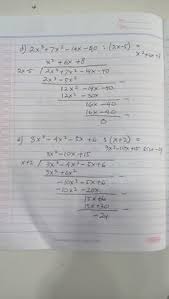 d) 2x³+7x²-14x-40 : (2x-5) =
x²+6x+8
x²+6x+8
2x-5 √ 2x³+7x²-14x-40
2x³-5x² -
12x²-14x-40
12x²-30x -
16x-40
16x-40 -
0
e) 3x³-4x²-5x+6 : (x+2) =
3x²-10x+15
3x²-10x+15
x+2 √ 3x³-4x²-5x+6
3x³+6x² -
-10x²-5x+6
-10x²-20x -
15x+6
15x+30 -
-24